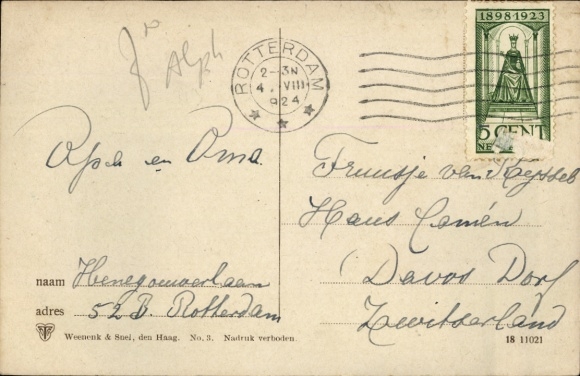 Jr
Alph
ROTTERDAM
2-3N
4.VIII
1924
1898-1923
5 CENT
NE
Opa en Oma
Fruusje van Heyssel
Haus Camén
Davos Dorf
Zwitserland
naam Henegouwerlaan
adres 52B. Rotterdam
Weenenk & Snel, den Haag. No. 3. Nadruk verboden.
18 11021